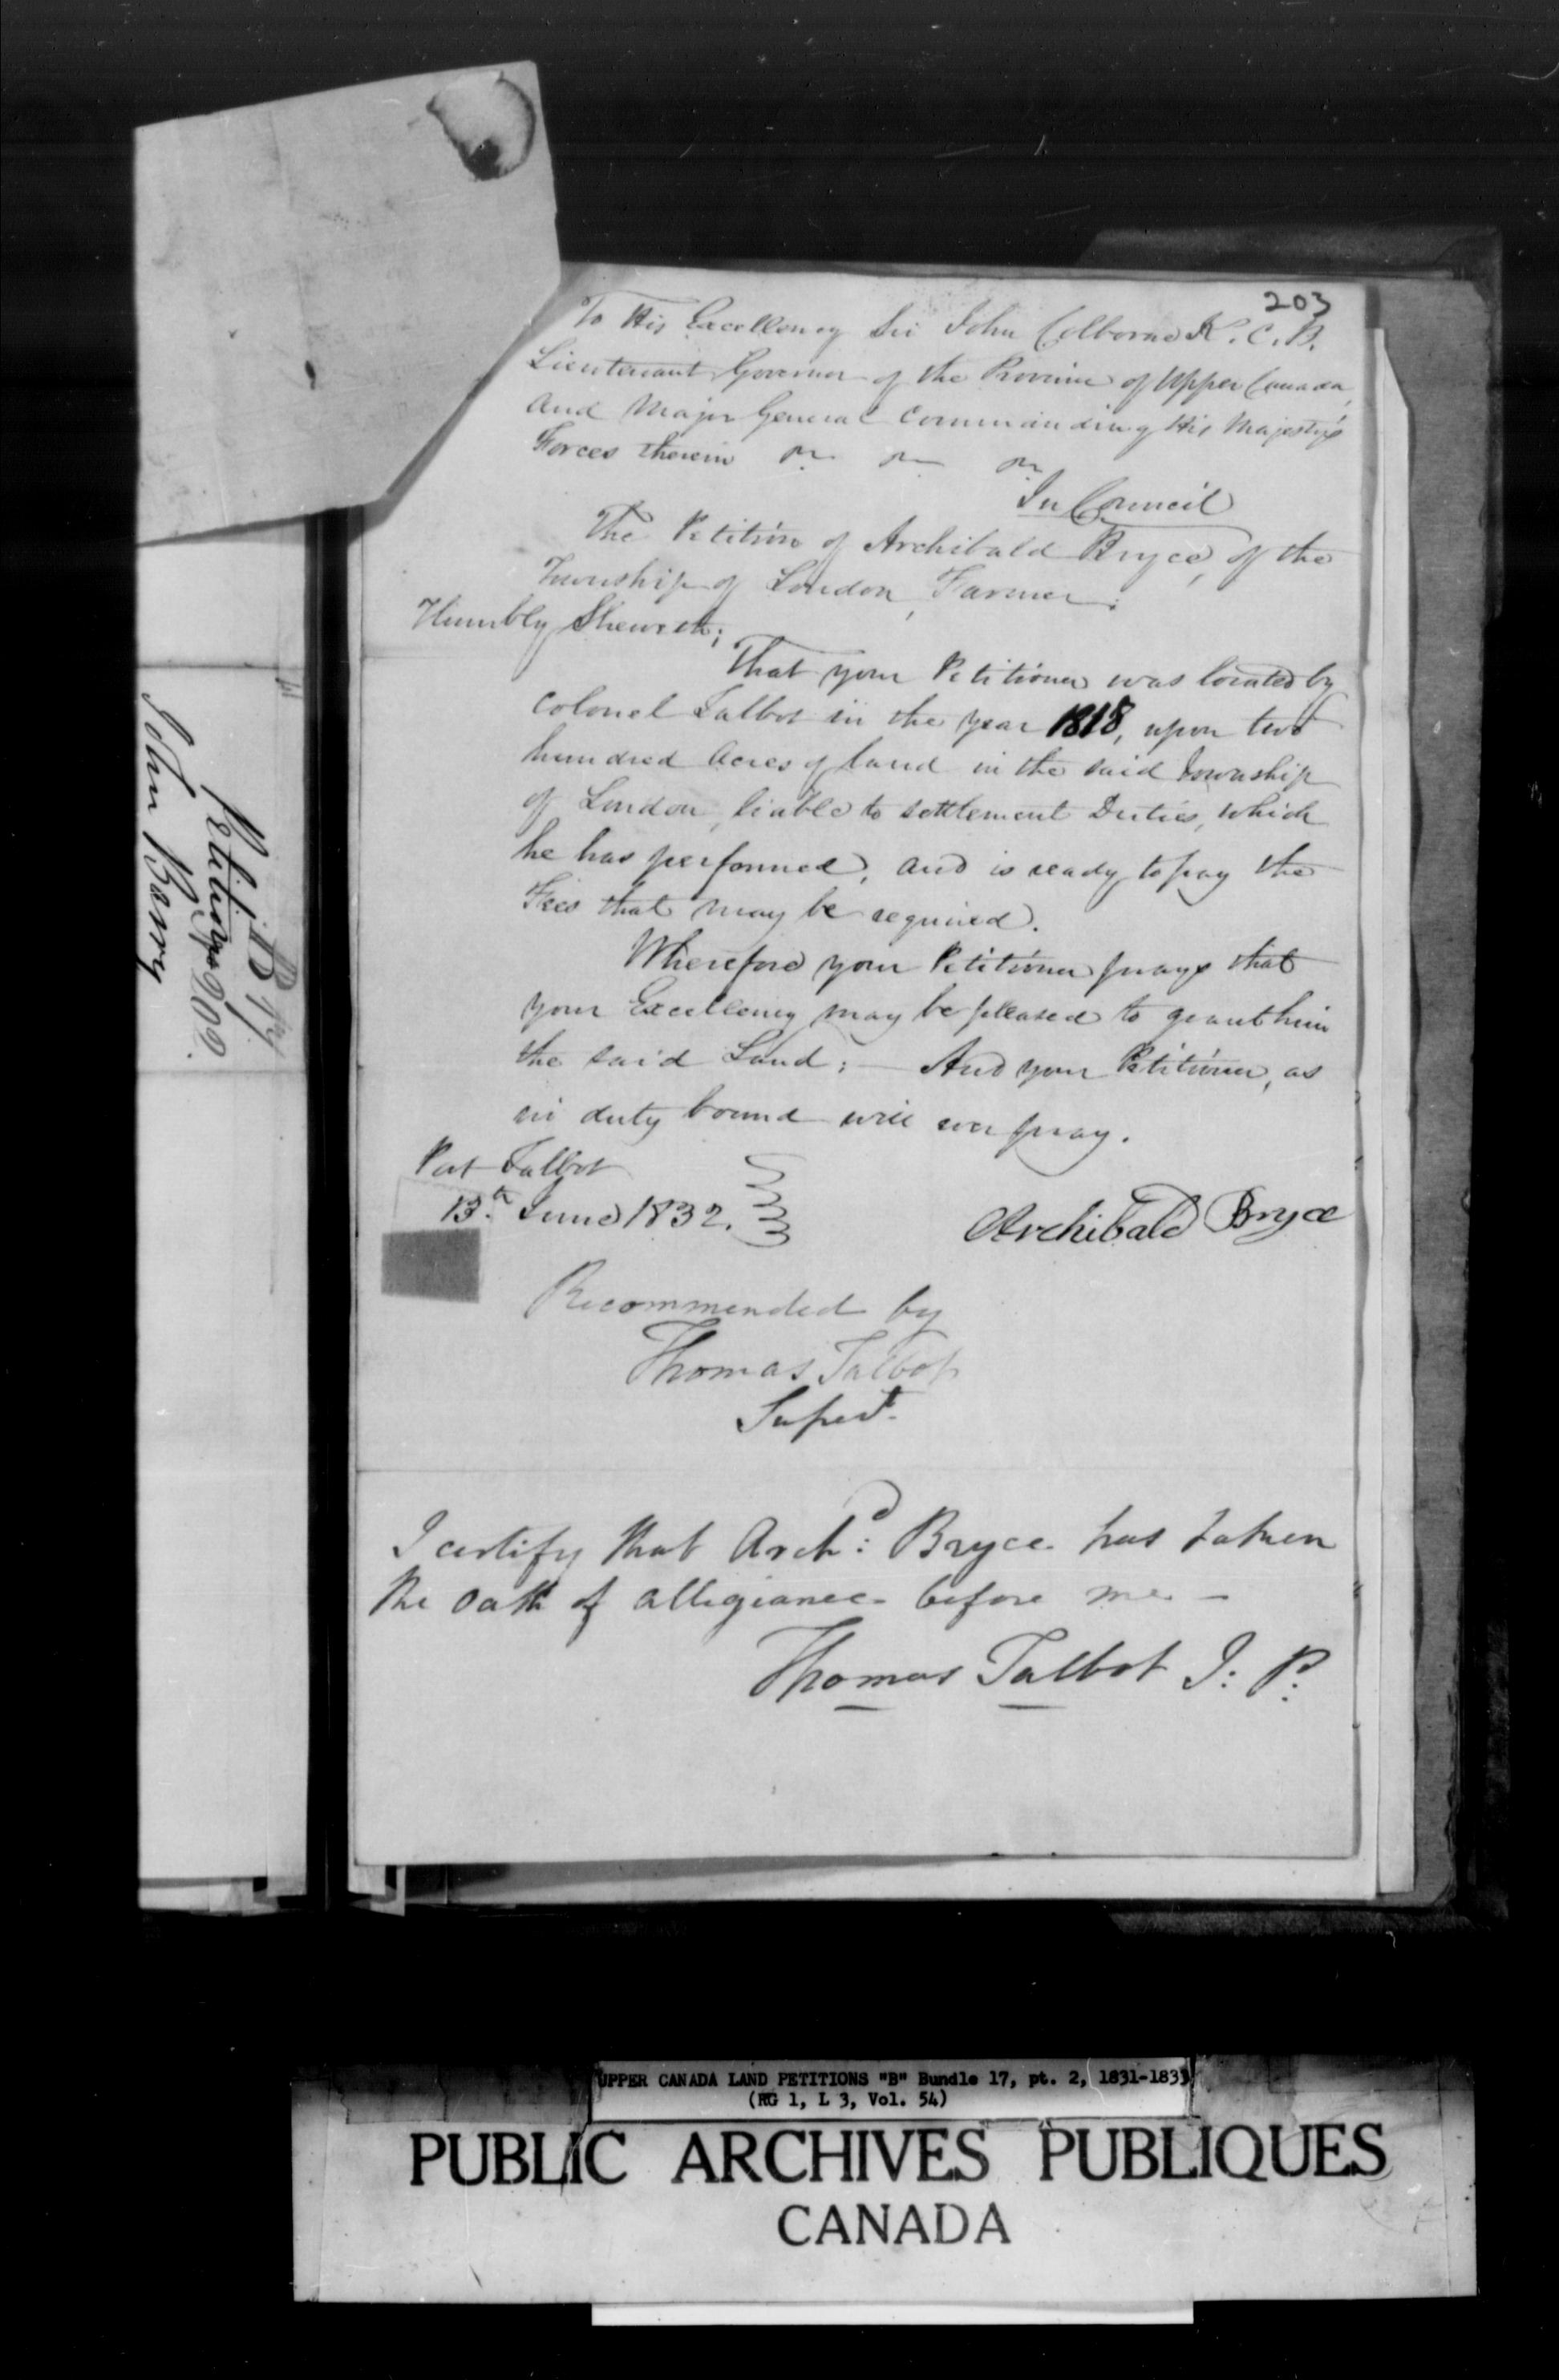 203
To His Excellency Sir John Colborne K. C. B.
Lieutenant Governor of the Province of Upper Canada,
and Major General Commanding His Majesty's
Forces therein
In Council
The Petition of Archibald Bryce, of the
Township of London, Farmer;
Humbly Sheweth;
That your Petitioner was located by
Colonel Talbot in the year 1818, upon two
hundred Acres of land in the said Township
of London, liable to settlement Duties, which
he has performed, and is ready to pay the
Fees that may be required.
Wherefore your Petitioner prays that
your Excellency may be pleased to grant him
the said Land; — And your Petitioner, as
in duty bound will ever pray.
Port Talbot
13th June 1832.
Archibald Bryce
Recommended by
Thomas Talbot
Supert.
I certify that Archd: Bryce has taken
the Oath of allegiance before me —
Thomas Talbot J: P:
B 17
Petition 202.
John Berry
UPPER CANADA LAND PETITIONS "B" Bundle 17, pt. 2, 1831-1833
(RG 1, L 3, Vol. 54)
PUBLIC ARCHIVES PUBLIQUES
CANADA